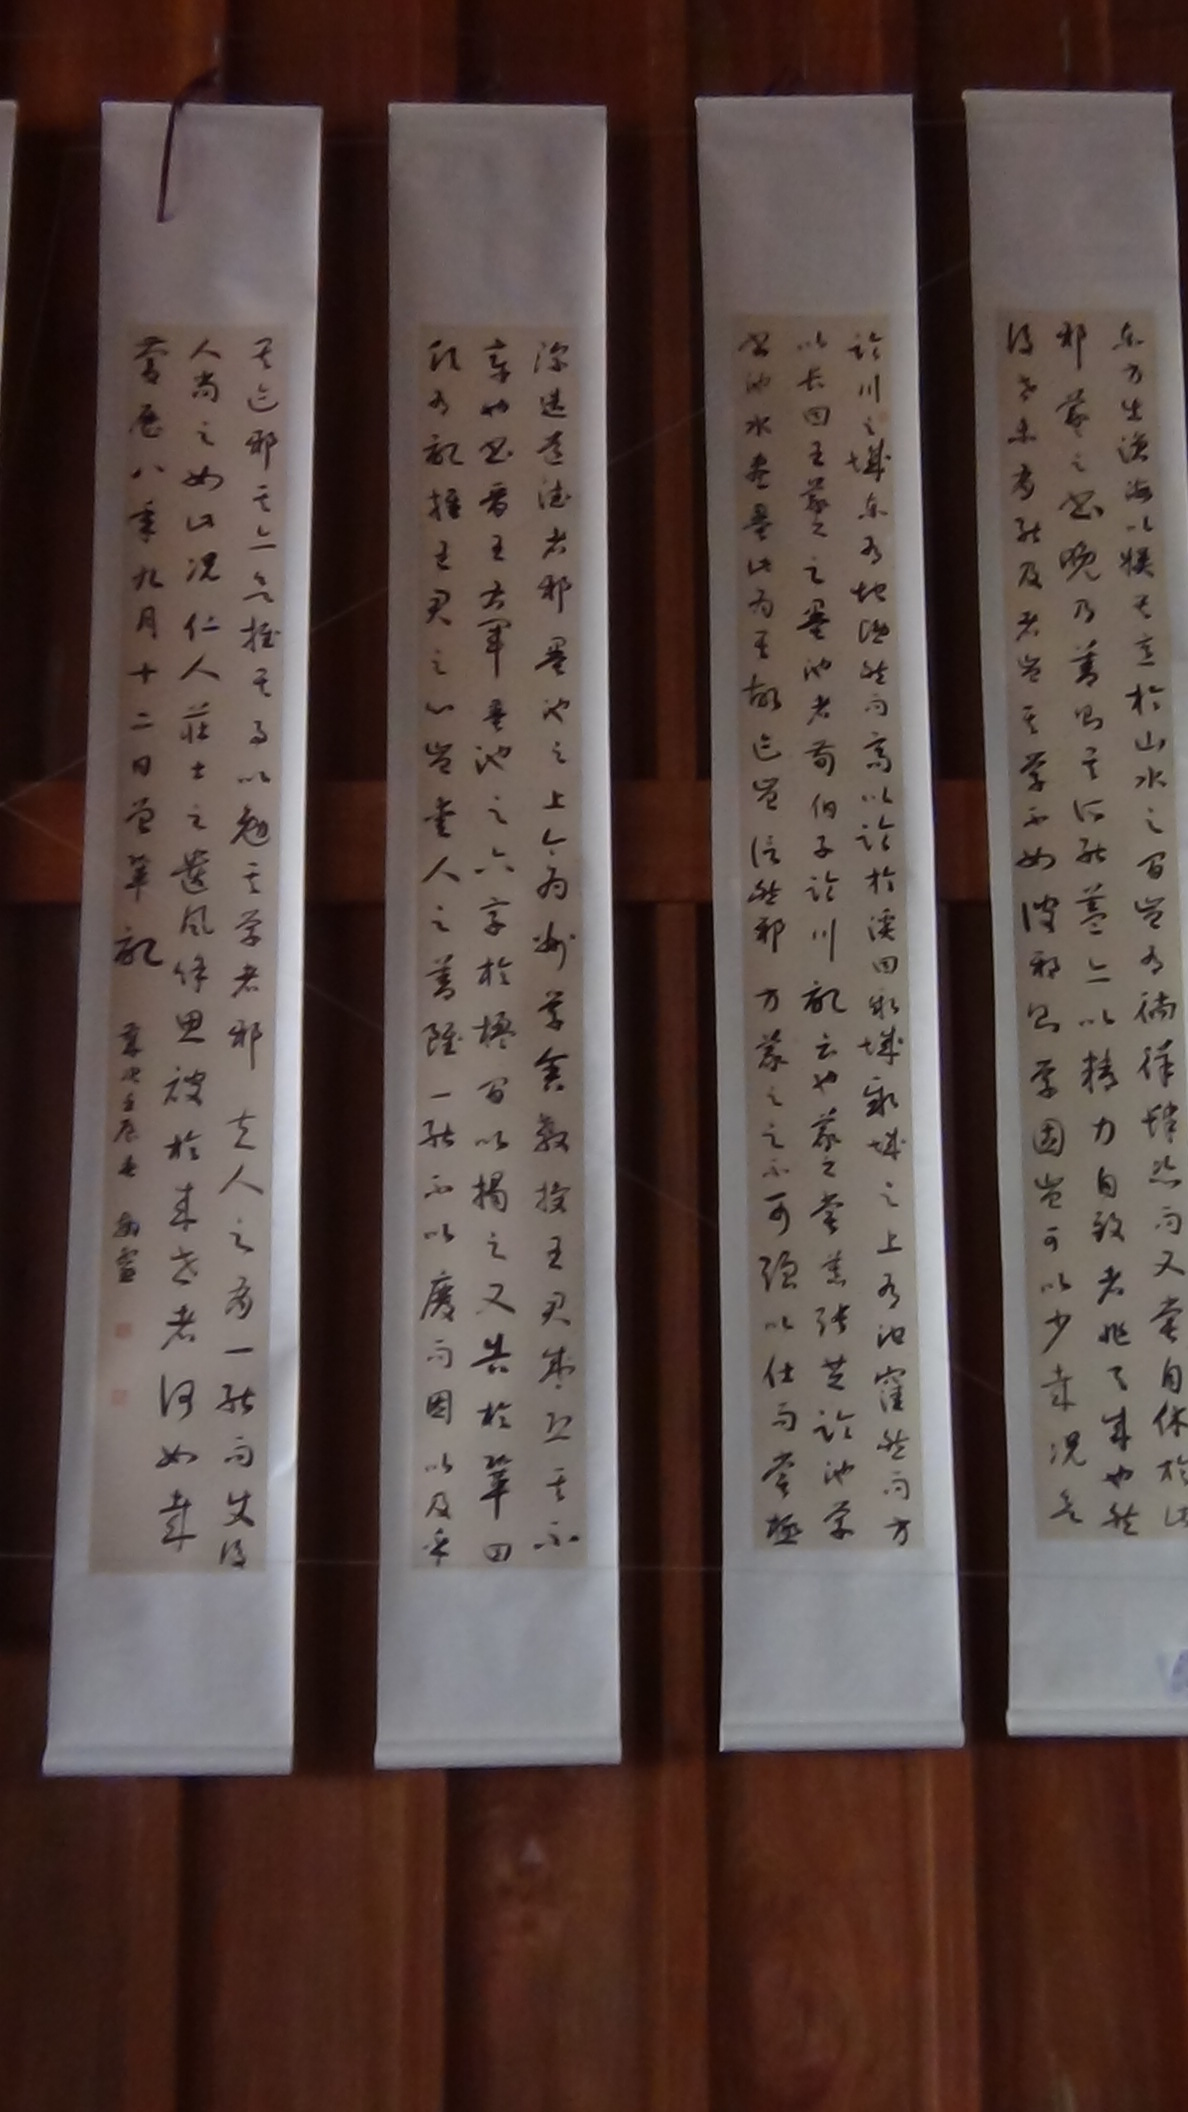 東方出滄海以娛其意於山水之間豈有徜徉肆恣而又嘗自休於此
邪羲之書晚乃善則其所能蓋亦以精力自致者非天成也然
後世未有能及者豈其學不如彼邪則學固豈可以少哉況欲
臨川之城東有地隱然而高以臨於溪曰新城新城之上有池窪然而方
以長曰王羲之之墨池者荀伯子臨川記云也羲之嘗慕張芝臨池學
書池水盡墨此為其故迹豈信然邪方羲之之不可強以仕而嘗極
深造道德者邪墨池之上今為州學舍教授王君盛恐其不
章也書晉王右軍墨池之六字於楹間以揭之又告於鞏曰
願有記推王君之心豈愛人之善雖一能不以廢而因以及乎
其迹邪其亦欲推其事以勉其學者邪夫人之有一能而使後
人尚之如此況仁人莊士之遺風餘思被於來世者何如哉
慶曆八年九月十二日曾鞏記